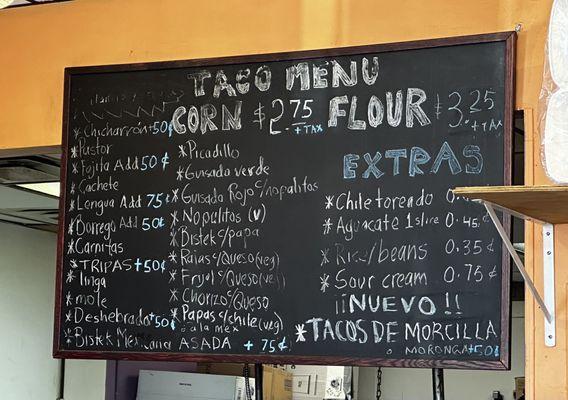 TACO MENU
CORN $2.75 +TAX
FLOUR $3.25 +TAX
*Chicharron +50¢
*Pastor
*Fajita Add 50¢
*Cachete
*Lengua Add 75¢
*Borrego Add 50¢
*Carnitas
*TRIPAS +50¢
*mole
*Deshebrada +50¢
*Bistek
ASADA +75¢
*Picadillo
*Guisada verde
*Guisada Rojo c/nopalitos
*Nopalitos (v)
*Bistek c/papa
*Rajas c/Queso (veg)
*Frijol c/Queso (veg)
*Chorizo c/Queso
*Papas c/chile (veg)
ó a la mex
EXTRAS
*Chile toreado
*Aguacate 1 slice 0.45¢
*Rice/beans 0.35¢
*Sour cream 0.75¢
¡¡NUEVO!!
*TACOS DE MORCILLA
ó MORONGA +50¢